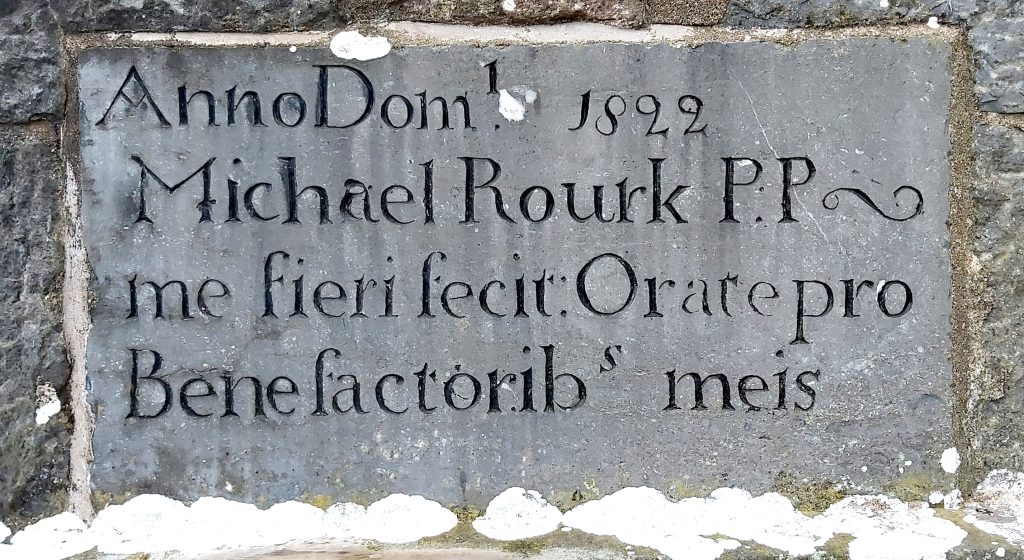 Anno Domˡ. 1822
Michael Rourk P.P
me fieri fecit: Orate pro
Benefactoribˢ meis